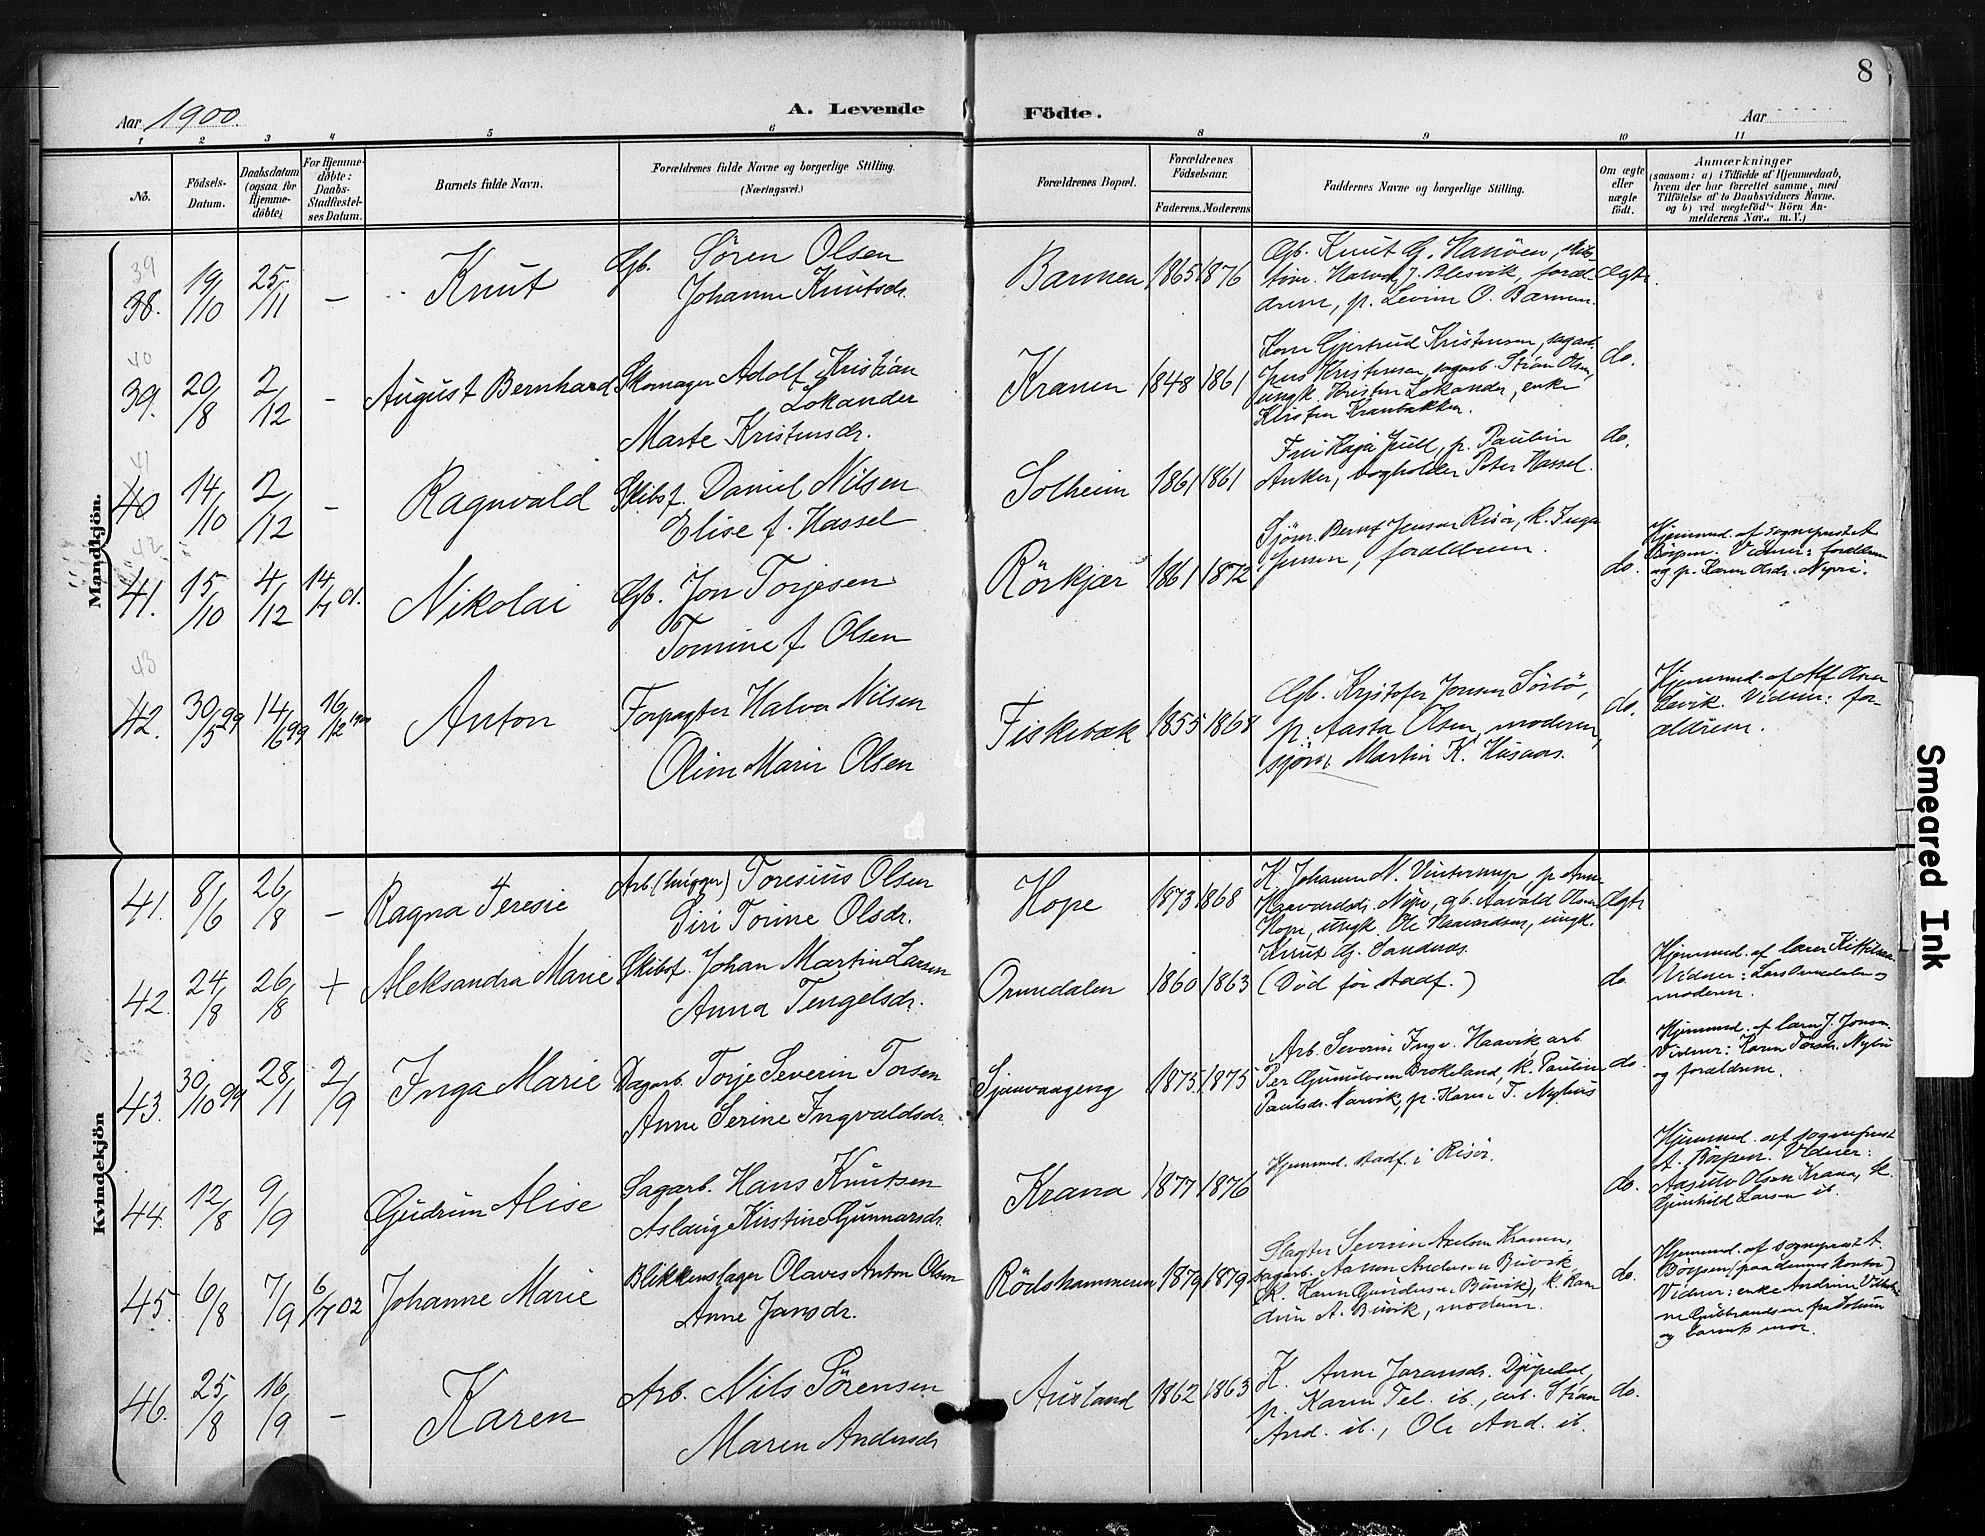 8
Aar 1900.
A. Levende
Födte.
Aar
1 2 3 4 5 6 8 9 10 11
No.
Födsels-
Datum.
Daabsdatum
(ogsaa for
Hjemme-
döbte)
For Hjemme-
döbte:
Daabs-
Stadfæstel-
ses Datum.
Barnets fulde Navn.
Forældrenes fulde Navne og borgerlige Stilling.
(Næringsvei.)
Forældrenes Bopæl.
Forældrenes
Födselsaar.
Faderens. Moderens
Faddernes Navne og borgerlige Stilling.
Om ægte
eller
uægte
födt.
Anmærkninger
(saasom: a) i Tilfælde af Hjemmedaab,
hvem der har forrettet samme, med
Tilföielse af to Daabsvidners Navne.
og b) ved uægteföd. Börn An-
melderens Nav., m. V.)
Mandkjön.
39
38. 19/10 25/11 – Knut
Gb. Søren Olsen
Johanne Knutsdr.
Barmen 1865 1876
Gb. Knut G.
p. O. Barmen.
Ægte.
40
39. 20/8 2/12 – August Bernhard
Skomager Adolf Kristian
Lokander
Marte Kristensdr.
Kranen 1848 1861
Kone Gjertrud Kristensen, sagarb.
Jens Kristensen, sagarb. Stian Olsen,
ungk. Kristen Lokander, enke
Kirsten Kranbakken.
do.
41
40 14/10 2/12 – Ragnvald
Skibsf. Daniel Nilsen
Elise f. Hassel
Solheim 1861 1861
Fru Kaja Juell, p. Pauline
Anker, bogholder Peter Hassel.
do.
42
41. 15/10 4/12 14/7 01. Nikolai
Gb. Jon Torjesen
Tomine f. Olsen
Rörkjær 1861 1872
Sjöm. Bernt Jensen Risör, k. Inga
Jensen, forældrene.
do.
Hjemmed. af sogneprest A.
Børpen. Vidner: forældrene
og p. Karen Olsdr.
43
42. 30/5 99 14/6 99 16/12 1900 Anton
Forpagter Halvor Nilsen
Oline Marie Olsen
Fiskebæk 1855 1868
Gb. Kristofer Jensen Sörbö,
p. Aasta Olsen, moderen,
sjöm. Martin K. Husaas.
do.
Hjemmed. af Alf Olsen
Vidner: for-
ældrene.
Kvindekjön
41. 8/6 26/8 – Ragna Teresie
Arb. Toresius Olsen
Siri Torine Olsdr.
Hope 1873 1868
K. Johanne N. p. Anne
gb. Aavald Olsen
Hope, ungk. Ole Haavardsen, ungk.
Knut G. Sandnes.
Ægte
42. 24/8 26/8 + Aleksandra Marie
Skibsf. Johan Martin Larsen
Anna Tengelsdr.
Ormdalen 1860 1863
(Död för stadf.)
do.
Hjemmed. af lærer Kittilsen
Vidner: Lars Ormdalen og
moderen.
43. 30/10 99 28/1 2/9 Inga Marie
Dagarb. Torje Severin Torsen
Anne Serine Ingvaldsdr.
Sjenvaageng 1875 1875
Arb. Severin Ingv. Haavik, arb.
Per Gundersen Brokeland, k. Pauline
Paulsdr. Narvik, p. Karen T. Nyhus
do.
Hjemmed. af lærer J. Jonsen.
Vidner: Karen Torsdr. Nyhus
og forældrene.
44. 12/8 9/9 Gudrun Alise
Sagarb. Hans Knutsen
Aslaug Kirstine Gunnarsdr.
Krana 1877 1876
Hjemmed. stadf. i Risör.
do.
Hjemmed. af sogneprest
A. Børpen. Vidner:
Olsen Krana, k.
Gunhild Larsen ib.
45. 6/8 7/9 6/7 02 Johanne Marie
Blikkenslager Olaves Anton Olsen
Anne Jansdr.
Rödshammeren 1879 1879
Slagter Severin Axelsen Kranen,
sagarb. Aanon Andersen Buvik
(k. Karen Gundersen Buvik), k.
A. Buvik, moderen.
do.
Hjemmed. af sogneprest A.
Børpen (paa dennes kontor)
Vidner: enke Andrine Vilhelmi-
ne Gulbrandsen
og barnets mor.
46. 25/8 16/9 – Karen
Arb. Nils Sörensen
Maren Andersdr.
Ausland 1862 1863
K. Anne Joransdr. Djupedal,
p. Karen Tel. ib., arb. Stian
And. ib., Ole And. ib.
do.
Smeared Ink